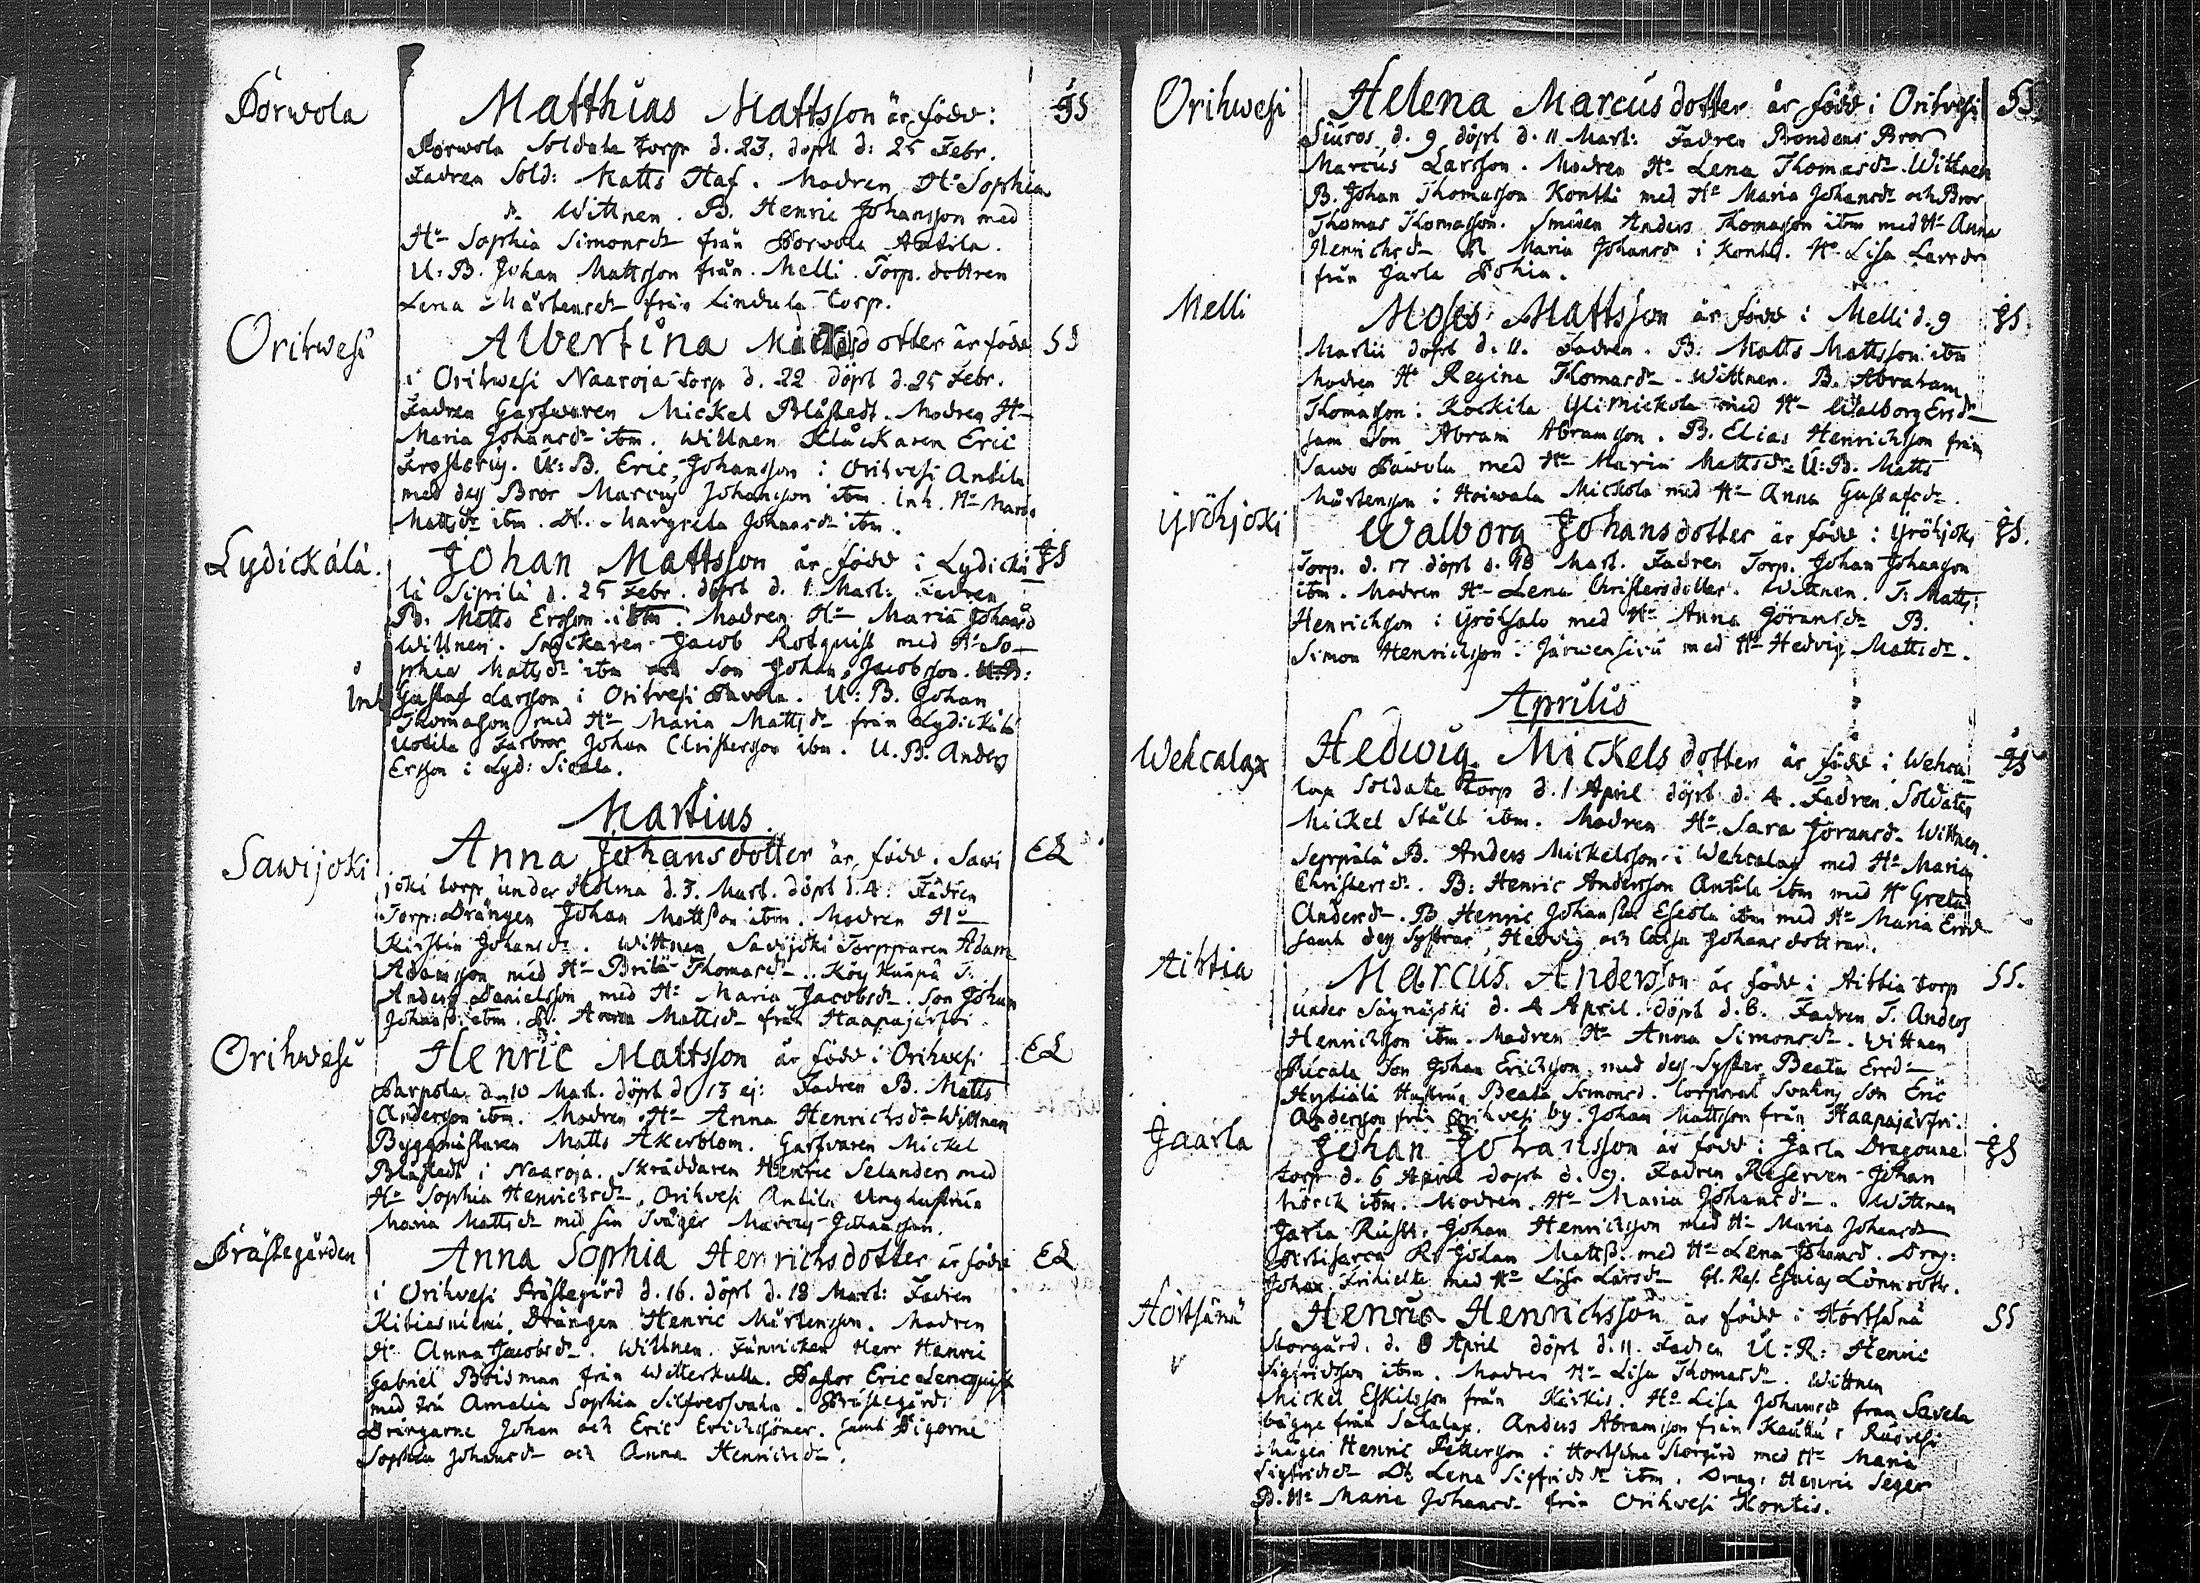 Porwola Matthias Mattsson är född: JS
Porwola Soldate torp d. 23, döpt d: 25 Febr.
Fadren Sold: Matts Staf. Modren Hu Sophia
Wittnen. B. Henric Johansson med
Hu Sophia Simonsdr från Porwola Antila.
U: B. Johan Mattsson från Melli Torp. dottren
Lena Mårtensdr från Lindula torp.
Orihwesi Albertina dotter är född SS
i Orihwesi Naaroja torp d. 22 döpt d. 25 Febr.
Fadren Garfwaren Mickel Blåstedt. Modren Hu
Maria Johansdr ibm. Wittnen Klåckaren Eric
U: B. Eric Johansson i Orihvesi Antila
med dess Bror Marcus Johansson ibm. Inh. Hu
Mattsdr ibm. Margreta Johansdr ibm.
Lydickälä Johan Mattsson är född i Lydickä JS
lä Sipilä d. 25 Febr. döpt d. 1 Mart: Fadren
B. Matts Ersson ibm. Modren Hu Maria Johansd
Wittnen. Snickaren Jacob Rotquist med Hu So
phia Mattsdr ibm och Son Johan Jacobsson. U: B:
Inh Gustaf Larsson i Orihvesi Pavola. U: B. Johan
Thomasson med Hu Maria Mattsdr från Lydickälä
Uotila Farbror Johan Christersson ibm. U. B. Anders
Ersson i Lyd:
Martius
Sawijoki Anna Johansdotter är född i Sawi EL
joki torp under Holma d. 3. Mart. döpt d. 4: Fadren
Torp: Drängen Johan Mattsson ibm. Modren Hu
Kirstin Johansdr. Wittnen Savijoki Torpparen Adam
Adamsson med Hu Brita Thomasdr. T.
Anders Danielsson med Hu Maria Jacobsdr. Son Johan
Johanss. ibm. Anna Mattsdr från Haapajärfvi
Orihwesi Henric Mattsson är född i Orihwesi EL
Parpola d. 10 Mart. döpt d. 13 ej: Fadren B. Matts
Andersson ibm. Modren Hu Anna Henrichsdr Wittnen
Byggmästaren Matts Åkerblom. Garfvaren Mickel
Blåstedt i Naaroja. Skräddaren Henric Selander med
Hu Sophia Henrichsdr, Orihvesi Antila Ung hustrun
Maria Mattsdr med sin Svåger Marcus Johansson.
Prästegården Anna Sophia Henrichsdotter är född EL
i Orihvesi Prästegård d. 16. döpt d. 18 Mart: Fadren
Kitiasniemi Drängen Henric Mårtensson. Modren
Hu Anna Jacobsdr. Wittnen. Fänricken Herr Henric
Gabriel Boisman från Witterkulla. Pastor Eric Lencquist
med Fru Amalia Sophia Silfversvahn. Prästegårds
Drängarne Johan och Eric Erichssöner. samt Pigorne
Sophia Johansdr och Anna Henricsdr.
Orihwesi Helena Marcusdotter är född i Orihvesi SS
Siuros d. 9 döpt d. 11 Mart: Fadren Bondens Bror
Marcus Larsson. Modren Hu Lena Thomasdr. Wittnen
B. Johan Thomasson Kontti med Hu Maria Johansdr och Bror
Thomas Thomasson. Smeden Anders Thomasson ibm med Hu Anna
Henrichsdr Maria Johansdr i Kontti. Hu Lisa Larsdr
från Jarla Pohia.
Melli Moses Mattsson är född i Melli d. 9 JS
Martii döpt d. 11. Fadren. B. Matts Mattsson ibm
Modren Hu Regina Thomasdr. Wittnen. B. Abraham
Thomasson i Kockila Ylimickola med Hu Walborg Ersdr
sam Son Abram Abramsson. B. Elias Henrichsson från
Sawo Päwola med Hu Maria Mattsdr. U: B. Matts
Mårtensson i Hoiwala Mickola med Hu Anna Gustafsdr.
Yröhjoki Walborg Johansdotter är född i Yröhjoki JS.
Torp. d. 17 döpt d. 18 Mart. Fadren Torp. Johan Johansson
ibm. Modren Hu Lena Christersdotter. Wittnen. T: Matts
Henrichsson i med Hu Anna Göransdr B.
Simon Henrichsson i Järwensivu med Hu Hedvig Mattsdr.
Aprilis
Wehcalax Hedwig Mickelsdotter är född i Wehca JS
lax Soldate torp d. 1 April döpt d. 4. Fadren Soldaten
Mickel Stålt ibm. Modren Hu Sara Jöransdr. Wittnen.
Seppälä B. Anders Mickelsson i Wehcalax med Hu Maria
Christersdr. B: Henric Andersson Antila ibm med Hu Greta
Andersdr. B Henric Johansson Eskola ibm med Hu Maria Ersdr
samt dess Systrar, Hedvig och Caisa Johansdottrar.
Aihtia Marcus Andersson är född i Aihtia torp SS.
under Säynäjoki d. 4 April döpt d. 6. Fadren T. Anders
Henrichsson ibm. Modren Hu Anna Simonsdr. Wittnen
Pucala Son Johan Erichsson med dess Syster Beata Ersdr
Hustrun Beata Simonsd. Corporal Svahns Son Eric
Andersson från Orihvesi by. Johan Mattsson från Haapajärfvi.
Jaarla Johan Johansson är född i Jarla Dragoune JS
torp d. 6 April döpt d. 9. Fadren Reserven Johan
Hörck ibm. Modren. Hu Maria Johansdr. Wittnen
Jarla Rusth: Johan Henrichsson med Hu Maria Johansdr
R: Johan Matts. med Hu Lena Johansd. Drag:
Johan med Hu Lisa Larsdr Gl. Res. Esaias Lönn dottr.
Hörtsänä Henric Henrichsson är född i Hörtsänä SS
Storgård. d. 8 April döpt d. 11. Fadren U: R: Henric
Sigfridsson ibm. Modren Hu Lisa Thomasdr. Wittnen
v Mickel Eskilsson från Kerkis. Hu Lisa Johansdr från Savela
bägge från Sahalax. Anders Abramsson från i Ruovesi
Mågen Henric Pettersson i Hortsäna Storgård med Hu Maria
Sigfridsdr Dr. Lena Sigfridsdr ibm. Drag: Henric Seger
B. Hu Maria Johansdr från Orihvesi Kontis.